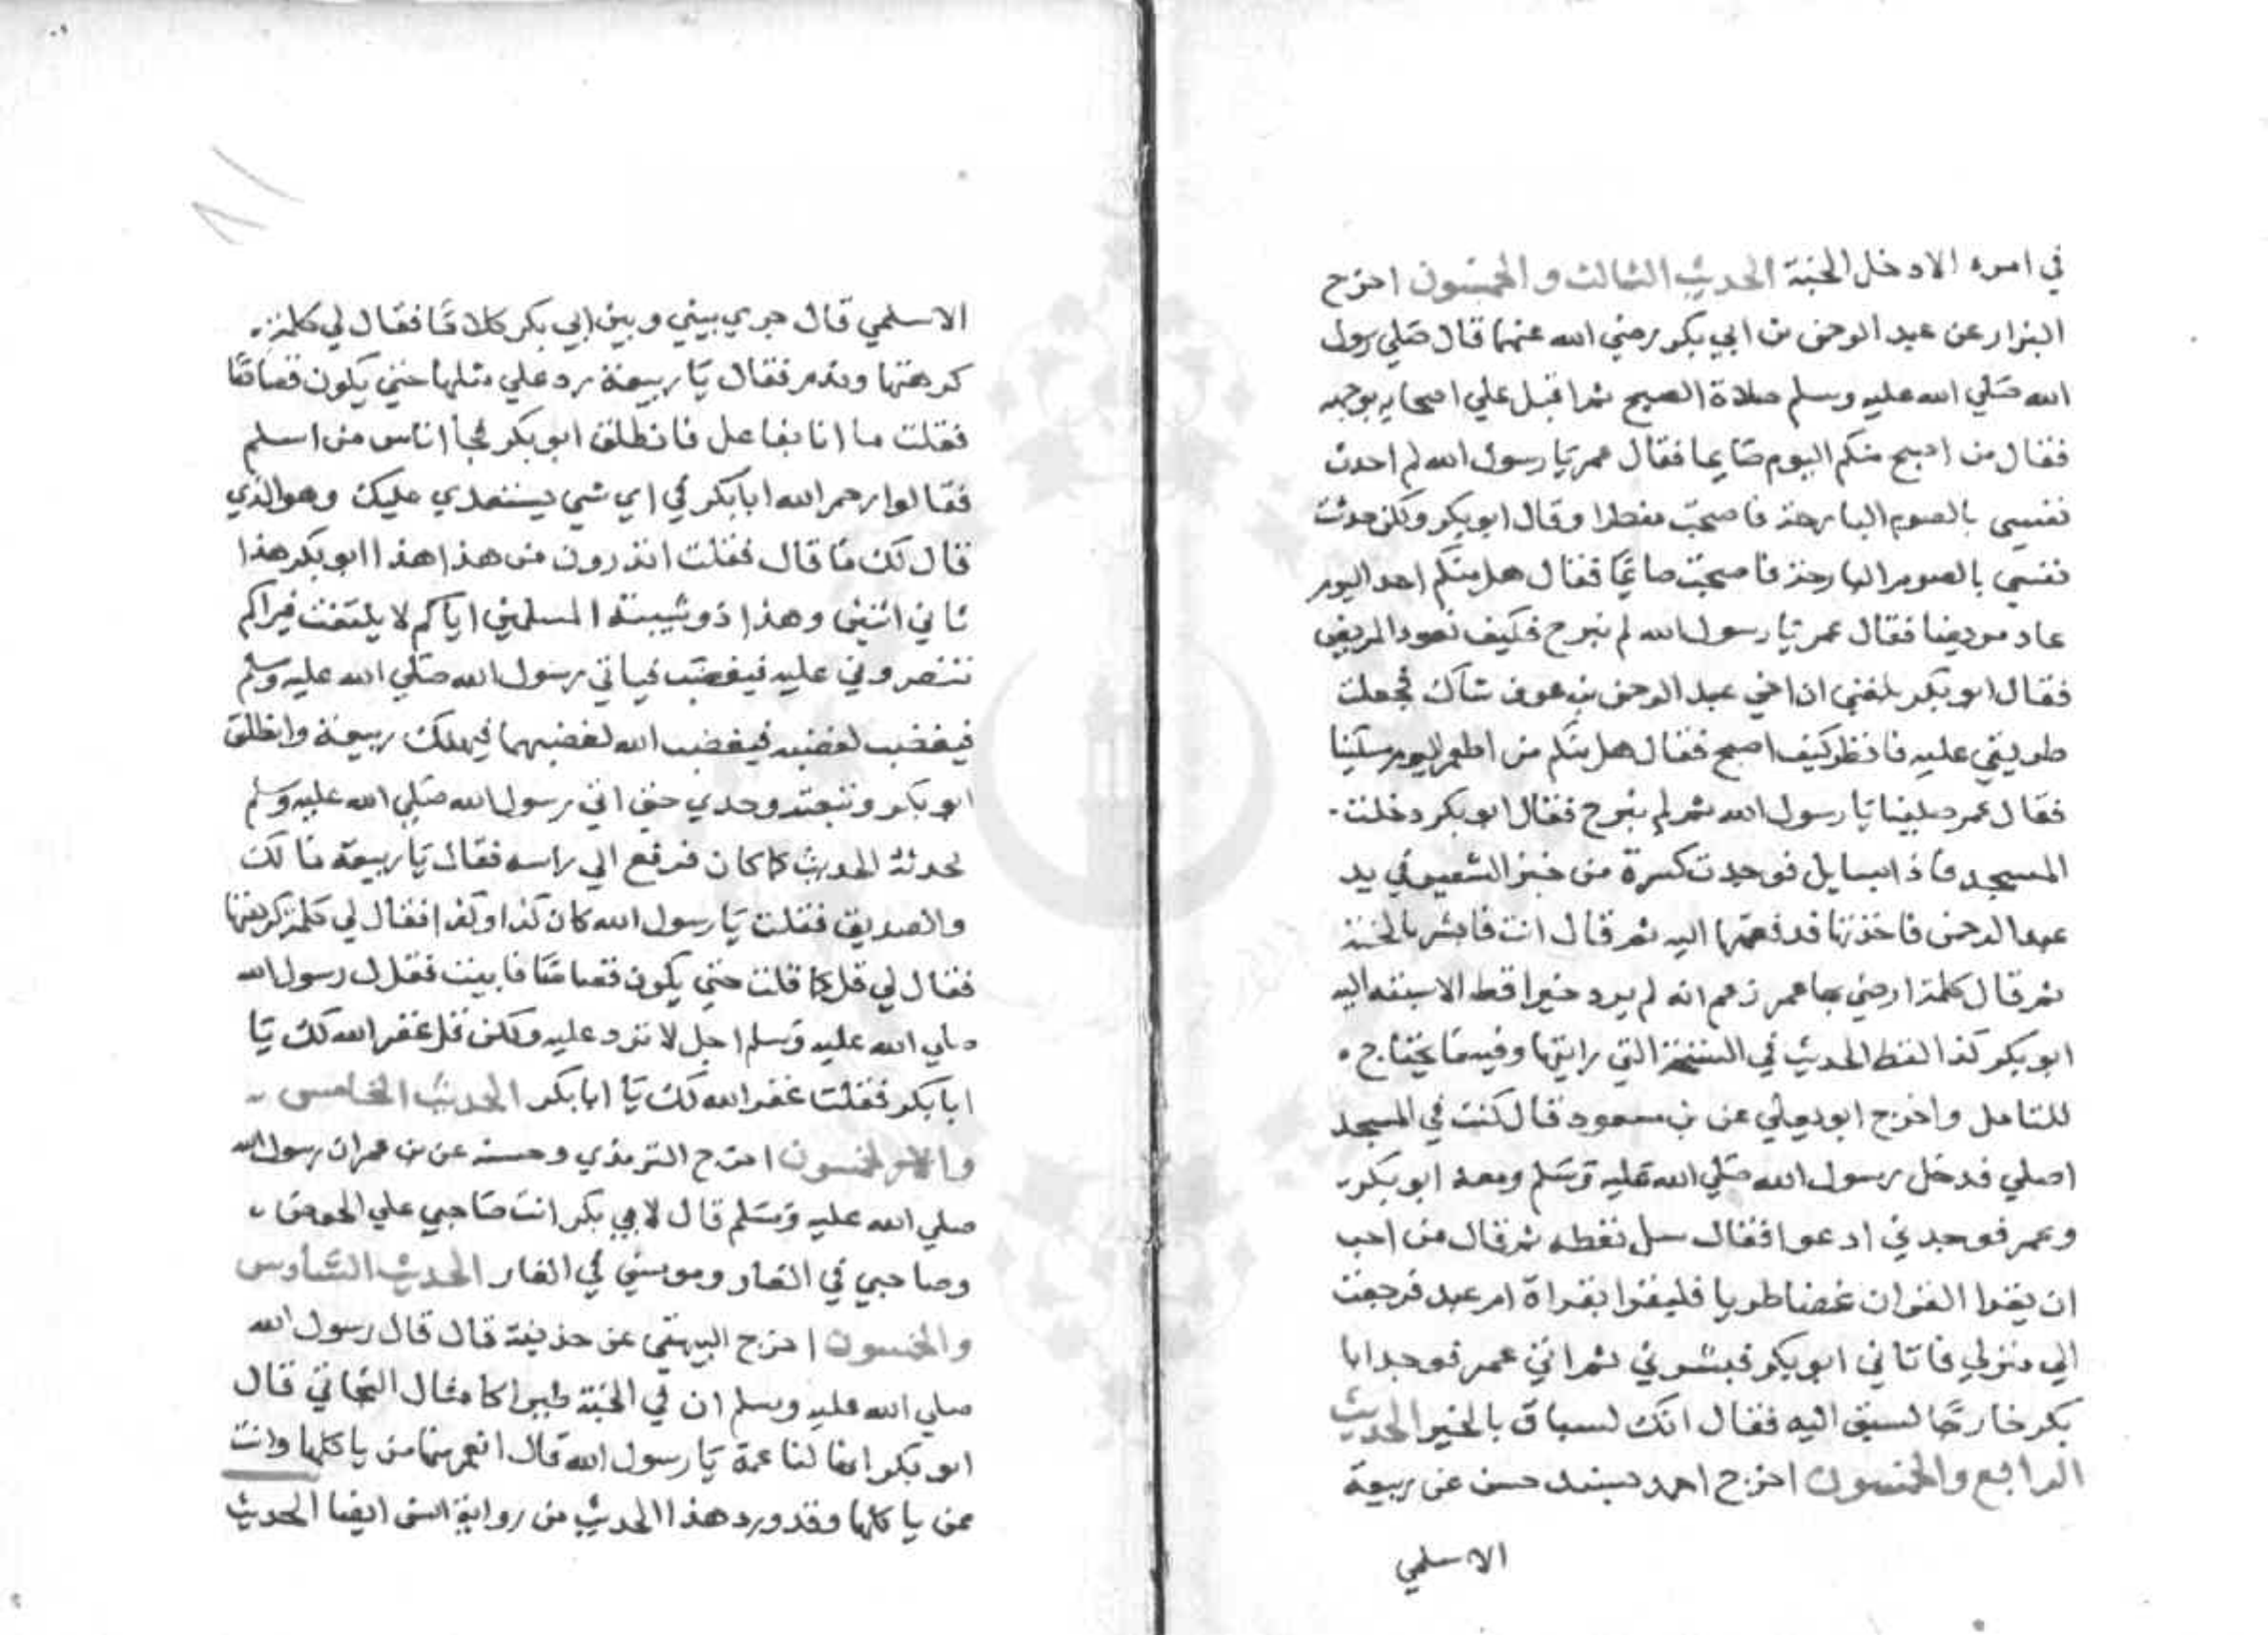 في امره الا دخل الجنة الحديث الثالث والخمسون اخرج
البزار عن عبد الرحمن بن ابي بكر رضي الله عنهما قال صلي رسول
الله صلي الله عليه وسلم صلاة الصبح ثم اقبل علي اصحابه بوجهه
فقال من اصبح منكم اليوم صايما فقال عمر يا رسول الله لم احدث
نفسي بالصوم البارحة فاصبحت مفطرا وقال ابو بكر ولكن حدثت
نفسي بالصوم البارحة فاصبحت صايما فقال هل منكم احد اليوم
عاد مريضا فقال عمر يا رسول الله لم نبرح فكيف نعود المريض
فقال ابو بكر بلغني ان اخي عبد الرحمن بن عوف شاك فجعلت
طريقي عليه فانظر كيف اصبح فقال هل منكم من اطعم اليوم مسكينا
فقال عمر صلينا يا رسول الله ثم لم نبرح فقال ابو بكر دخلت
المسجد فاذا بسايل فوجدت كسرة من خبز الشعير في يد
عبد الرحمن فاخذتها فدفعتها اليه ثم قال انت فابشر بالجنة
ثم قال كلمة ارضي بها عمر زعم انه لم يرد خيرا قط الا سبقه اليه
ابو بكر كذا لفظ الحديث في النسخة التي رايتها وفيه ما يحتاج
للتامل واخرج ابو يعلي عن بن مسعود قال كنت في المسجد
اصلي فدخل رسول الله صلي الله عليه وسلم ومعه ابو بكر
وعمر فوجدني ادعوا فقال سل تعطه ثم قال من احب
ان يقرا القران غضا طريا فليقرا بقراة ام عبد فرجعت
الي منزلي فاتاني ابو بكر فبشرني ثم اتي عمر فوجد ابا
بكر خارجا لسبق اليه فقال انك لسباق بالخير الحديث
الرابع والخمسون اخرج احمد بسند حسن عن ربيعة
الاسلمي
٨١
الاسلمي قال جري بيني وبين ابي بكر كلاما فقال لي كلمة
كرهتها وندم فقال يا ربيعة رد علي مثلها حتي يكون قصاصا
فقلت ما انا بفاعل فانطلق ابو بكر فجا اناس من اسلم
فقالوا رحم الله ابا بكر في اي شي يستعدي عليك وهو الذي
قال لك ما قال فقلت اتدرون من هذا هذا ابو بكر هذا
ثاني اثنين وهذا ذو شيبة المسلمين اياكم لا يلتفت فيراكم
تنصروني عليه فيغضب فياتي رسول الله صلي الله عليه وسلم
فيغضب لغضبه فيغضب الله لغضبهما فيهلك ربيعة وانطلق
ابو بكر وتبعته وحدي حتي اتي رسول الله صلي الله عليه وسلم
فحدثه الحديث كما كان فرفع الي راسه فقال يا ربيعة مالك
والصديق فقلت يا رسول الله كان كذا وكذا فقال لي كلمة كرهتها
فقال لي قل كما قلت حتي يكون قصاصا فابيت فقال رسول الله
صلي الله عليه وسلم اجل لا ترد عليه ولكن قل غفر الله لك يا
ابا بكر فقلت غفر الله لك يا ابا بكر الحديث الخامس
والخمسون اخرج الترمذي وحسنه عن بن عمر ان رسول الله
صلي الله عليه وسلم قال لابي بكر انت صاحبي علي الحوض
وصاحبي في الغار ومونسي في الغار الحديث السادس
والخمسون اخرج البيهقي عن حذيفة قال قال رسول الله
صلي الله عليه وسلم ان في الجنة طيرا كامثال البخاتي قال
ابو بكر انها لناعمة يا رسول الله قال انعم منها من ياكلها وانت
ممن ياكلها وقد ورد هذا الحديث من رواية انس ايضا الحديث